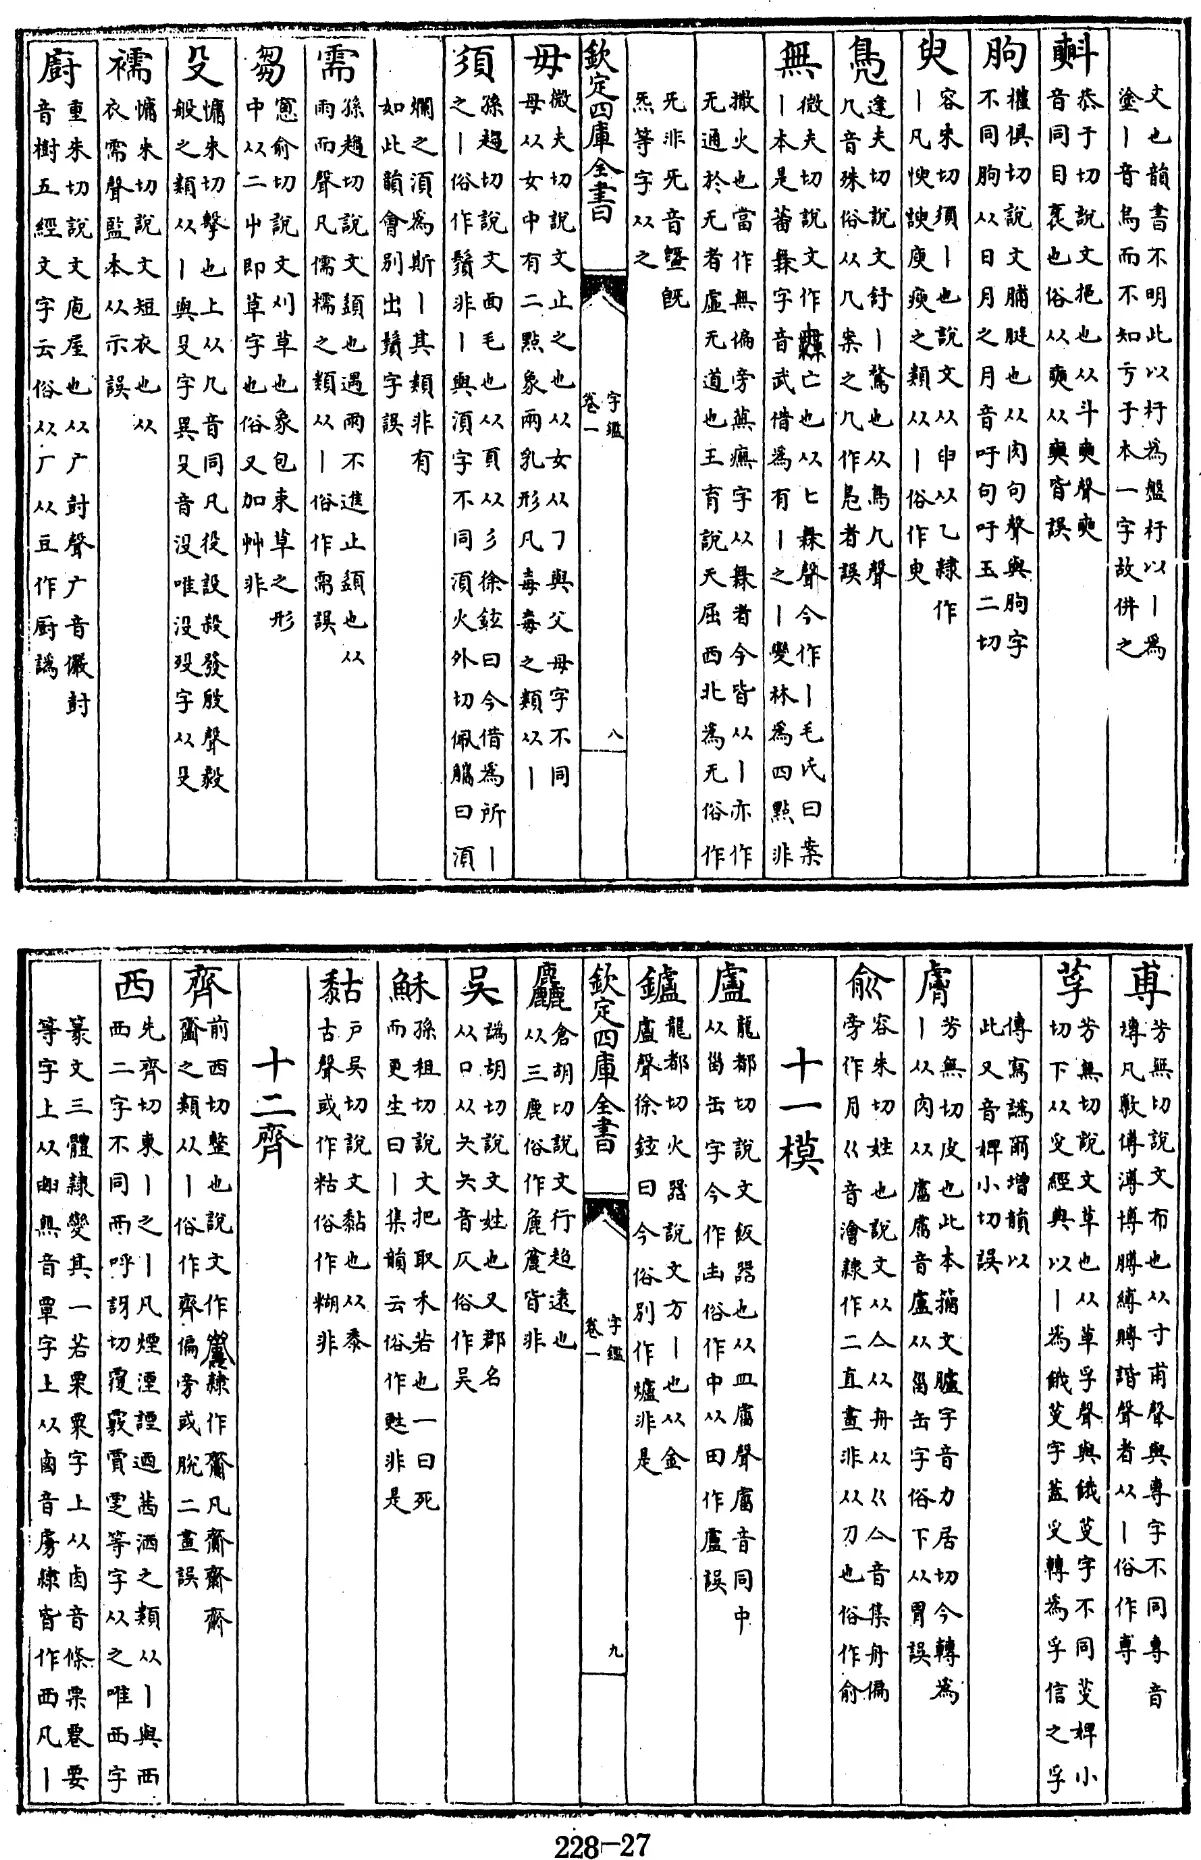 文也韻書不明此以杅爲盤杅以丨爲
塗丨音烏而不知亏于本一字故併之
㪺
恭于切說文挹也从斗聲
音同目衺也俗从奭从爽皆誤
朐
權俱切說文脯脡也从肉句聲與朐字
不同朐从日月之月音吁句吁玉二切
臾
容朱切須丨也說文从申以乙隸作
丨凡悚諛庾瘐之類从丨俗作㬰
鳧
逢夫切說文舒丨鶩也从鳥几聲
几音殊俗从几案之几作鳬者誤
無
微夫切說文作𣞣亡也从亡橆聲今作丨毛氏曰案
丨本是蕃橆字音武借爲有丨之丨變林爲四點非
撒火也當作無偏旁蕪廡字从橆者今皆从丨亦作
无通於无者虛无道也王育說天屈西北爲无俗作
旡非旡音墍旣
炁等字从之
欽定四庫全書
字鑑
卷一
八
毋
微夫切說文止之也从女从丆與父母字不同
母从女中有二點象兩乳形凡毒毐之類从丨
須
孫趨切說文面毛也从頁从彡徐鉉曰今借爲所丨
之丨俗作鬚非丨與湏字不同湏火外切佩觿曰湏
爛之湏爲斯丨其類非有
如此韻會別出鬚字誤
需
孫趨切說文䇓也遇雨不進止䇓也从
雨而聲凡儒檽之類从丨俗作𩂉誤
芻
窻俞切說文刈草也象包束草之形
中从二屮即草字也俗又加艸非
殳
慵朱切擊也上从几音同凡役設殺發殷聲毅
般之類从丨與𠬛字異𠬛音没唯沒歿字从𠬛
襦
慵朱切說文短衣也从
衣需聲監本从示誤
廚
重朱切說文庖屋也从广尌聲广音儼尌
音樹五經文字云俗从厂从豆作厨譌
尃
芳無切說文布也从寸甫聲與專字不同專音
塼凡敷傅溥博膊縛賻諧聲者从丨俗作専
莩
芳無切說文草也从草孚聲與餓芆字不同芆桴小
切下从𠬪經典以丨爲餓芆字蓋𠬪轉爲孚信之孚
傳寫譌爾增韻以
此又音桴小切誤
膚
芳無切皮也此本籀文臚字音力居切今轉爲
丨从肉从虍䖒音盧从甾缶字俗下从胃誤
俞
容朱切姓也說文从亼从舟从巜亼音集舟偏
旁作月巜音澮隸作二直畫非从刀也俗作俞
十一模
盧
龍都切說文飯器也从皿𧆨聲𧆨音同中
从甾缶字今作甶俗作中从田作盧誤
鑪
龍都切火器說文方丨也从金
盧聲徐鉉曰今俗別作爐非是
欽定四庫全書
字鑑
卷一
九
麤
倉胡切說文行超遠也
从三鹿俗作麁麄皆非
吳
譌胡切說文姓也又郡名
从口从夨夨音仄俗作吴
穌
孫租切說文把取禾若也一曰死
而更生曰丨集韻云俗作甦非是
黏
戶吳切說文黏也从黍
古聲或作粘俗作糊非
十二齊
齊
前西切整也說文作𪗉隸作齊凡齋齎齏
齏之類从丨俗作斉偏旁或脫二畫誤
西
先齊切東丨之丨凡煙湮諲迺茜洒之類从丨與襾
西二字不同襾呼訝切覆覈賈覂等字从之唯西字
篆文三體隸變其一若栗粟字上从𠧪音條票䙴要
等字上从𦥑與音覃字上从鹵音虜隸皆作西凡丨
228-27